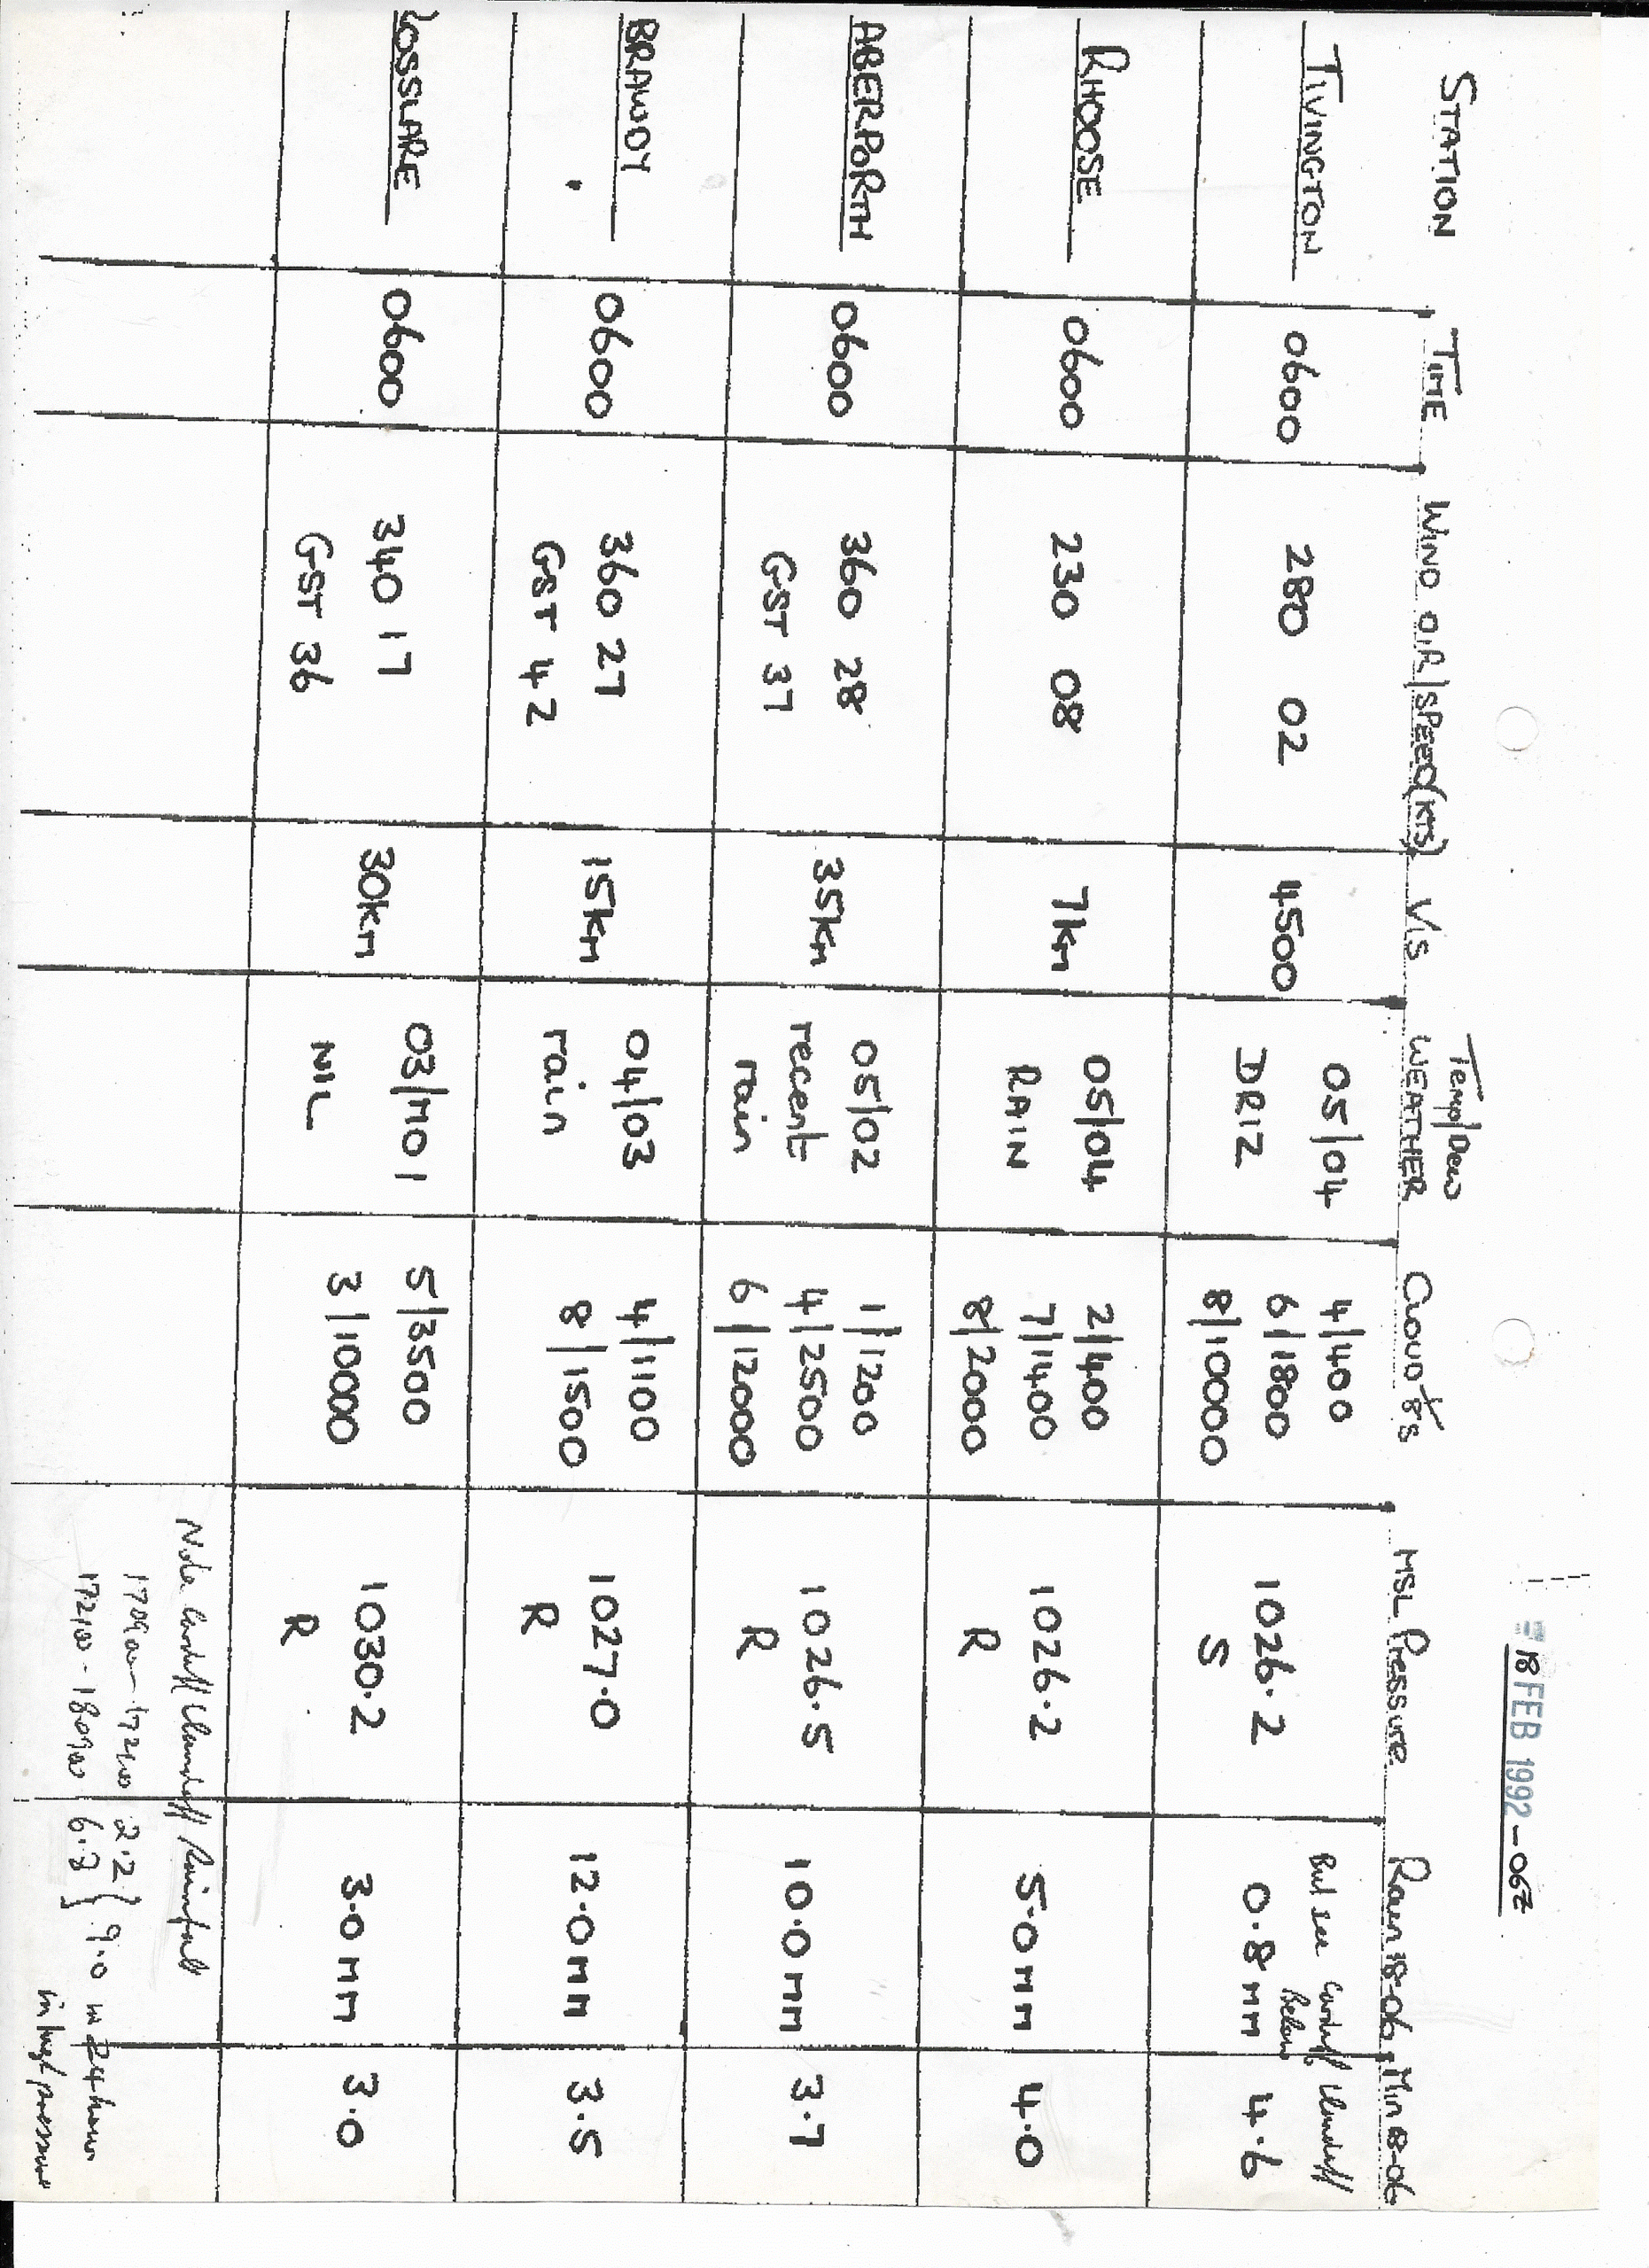 18 FEB 1992 - 06Z
STATION TIME WIND DIR/SPEED(KTS) VIS Temp/Dew WEATHER CLOUD 1/8s MSL Pressure Rain 18-06 Min 18-06
But see Cardiff Llandaff
Below
TIVINGTON 0600 280 02 4500 05/04 4/400 1026.2 0.8mm 4.6
DRIZ 6/1800 S
8/10000
RHOOSE 0600 230 08 7km 05/04 2/400 1026.2 5.0mm 4.0
RAIN 7/1400 R
8/2000
ABERPORTH 0600 360 28 35km 05/02 1/1200 1026.5 10.0mm 3.7
GST 37 recent 4/2500 R
rain 6/12000
BRAWDY 0600 360 27 15km 04/03 4/1100 1027.0 12.0mm 3.5
GST 42 rain 8/1500 R
ROSSLARE 0600 340 17 30km 03/M01 5/3500 1030.2 3.0mm 3.0
GST 36 NIL 3/10000 R
Note Cardiff Llandaff Rainfall
170900 - 172100 2.2
172100 - 180900 6.8 } 9.0 in 24 hours
in high pressure